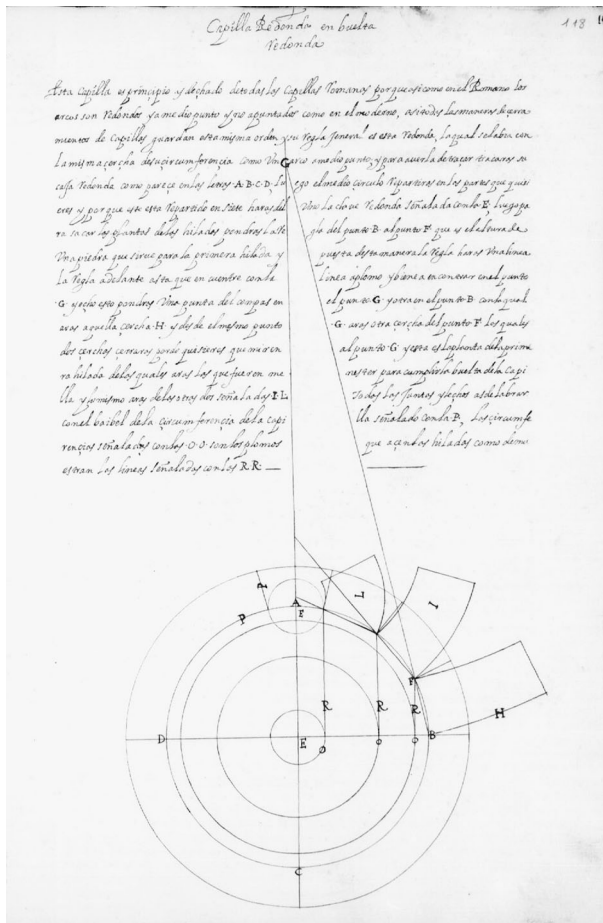 Capilla Redonda en buelta
redonda
113
Esta Capilla es principio y dechado de todas las Capillas Romanas porque asi como en el Romano los
arcos son redondos ya medio punto y no apuntados como en el moderno, asi todas las maneras de cerra
mientos de Capillas guardan esta misma orden y su regla jeneral es esta redonda, la qual se labra con
la misma cercha de su çircumferençia como Un arco a medio punto, y para averla de traçar traçaras su
caja redonda como pareçe en las letras ·A·B·C·D, lu ego el medio circulo repartiras en las partes que quisi
eres y porque este esta repartido en siete haras del Uno la clave redonda señalada con la E, luego pa
ra sacar las plantas de las hiladas pondras la re gla del punto B. al punto F. que es el altura de
Una piedra que sirve para la primera hilada y puesta desta manera la regla haras Una linea
la regla adelante asta que encuentre con la linea a plomo y biene a encontrar en el punto
·G· y echo esto pondras Una punta del compas en el punto G· y otra en el punto B con la qual
aras aquella cercha ·H· y desde el mesmo punto G· aras otra cercha del punto F las quales
dos cerchas cerraras por do quisieres que miren al punto ·G· y esta es la planta de la prime
ra hilada de las quales aras las que fueren me nester para cumplir la buelta de la Capi
lla y lo mismo aras de las otras dos señaladas I·L· todas las juntas y lechos as de labrar
con el baibel de la circumferençia de la Capi lla señalado con la P, las çircumfe
rençias señaladas con las ·O·O· son los plomos que açen las hiladas como demu
estran las lineas señaladas con las R.R:
G
A
E
P
P
L
I
F
H
R
R
R
D
E
O
O
O
B
C